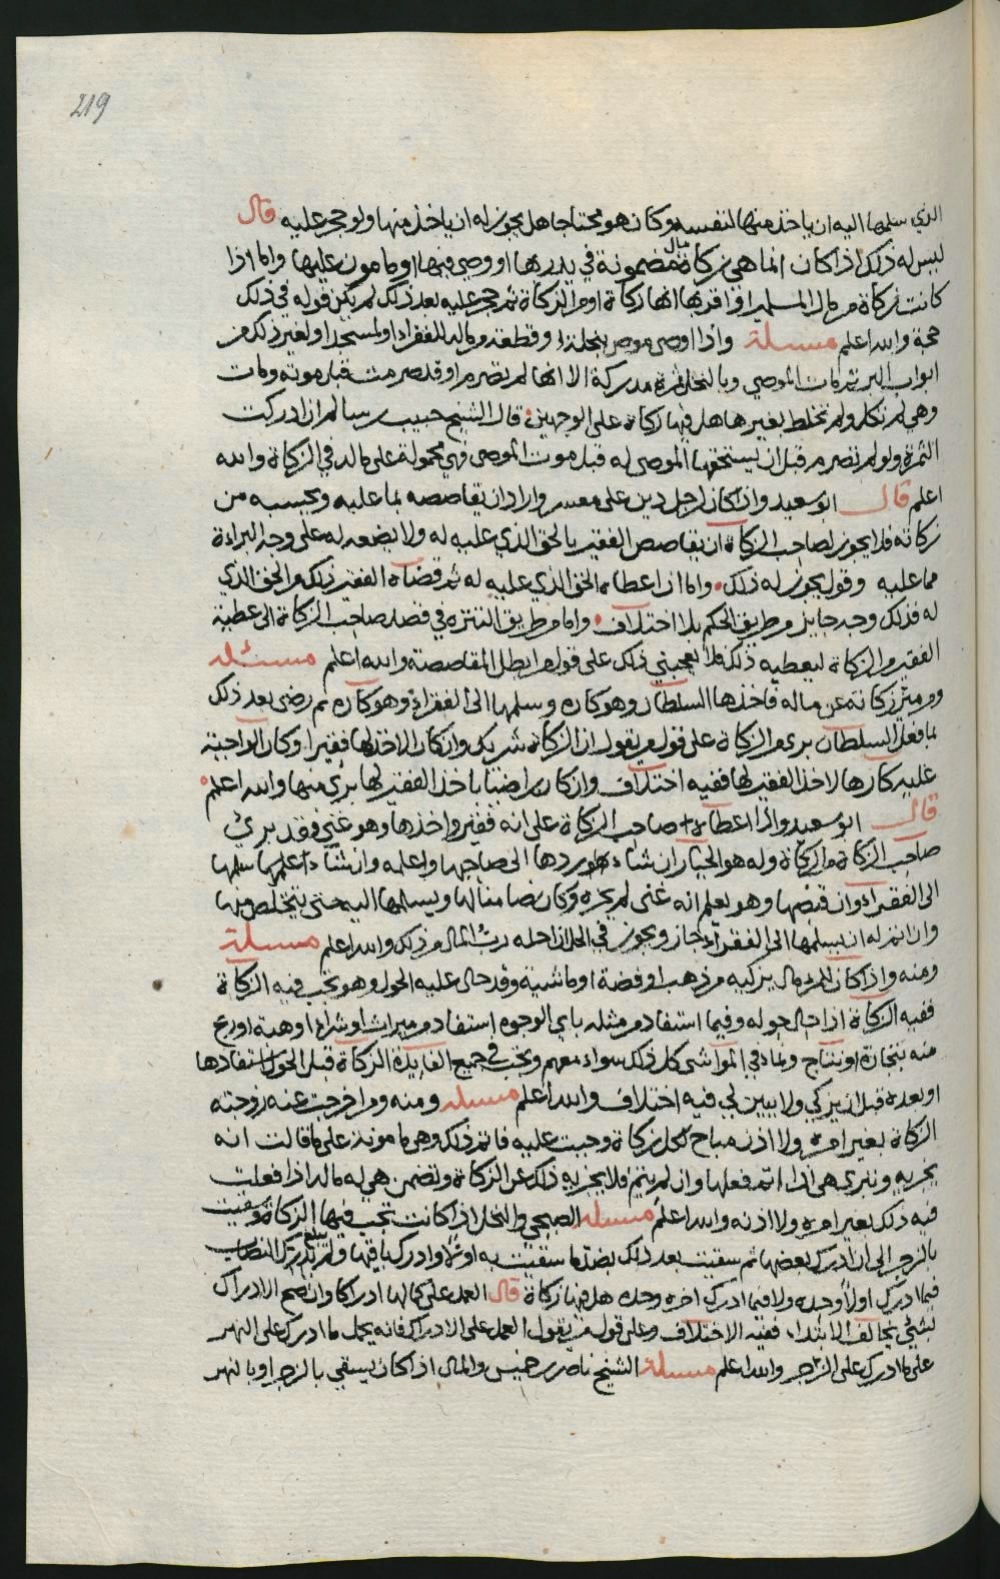 219
الذي سلمها اليه ان ياخذ منها لنفسه وكان هو محتاجا هل يجوز له ان ياخذ منها ولو حجر عليه قال
ليس له ذلك اذا كان انما هي زكاة مال مضمونة في يد ربها او وصي فيها او مامون عليها واما اذا
كانت زكاة من مال المسلمين او اقر بها انها زكاة او من الزكاة ثم حجر عليه بعد ذلك لم يكن قوله في ذلك
حجة والله اعلم مسئلة واذا اوصى موص بنخلة او قطعة من ماله للفقراء او لمسجد او لغير ذلك من
ابواب البر ثم مات الموصي وبالنخل ثمرة مدركة الا انها لم تصرم او قد صرمت قبل موته ومات
وهي لم تكل ولم تخلط بغيرها هل فيها زكاة على الوجهين قال الشيخ حبيب بن سالم ان ادركت
الثمرة ولو لم تصرم قبل ان يستحقها الموصى له قبل موت الموصي فهي محمولة على ماله في الزكاة والله
اعلم قال ابو سعيد واذا كان لرجل دين على معسر واراد ان يقاصصه بما عليه ويحسبه من
زكاته فلا يجوز لصاحب الزكاة ان يقاصص الفقير بالحق الذي عليه له ولا يضعه له على وجه البراءة
مما عليه وقول يجوز له ذلك واما ان اعطاه الحق الذي عليه له ثم قضاه الفقير ذلك من الحق الذي
له فذلك وجه جايز من طريق الحكم بلا اختلاف واما من طريق التنزه في قصد صاحب الزكاة الى عطية
الفقير من الزكاة ليعطيه ذلك فلا يعجبني ذلك على قول من ابطل المقاصصة والله اعلم مسئلة
ومن ميز زكاته عن ماله فاخذها السلطان وهو كاره وسلمها الى الفقراء وهو كاره ثم رضى بعد ذلك
بما فعل السلطان برئ من الزكاة على قول من يقول ان الزكاة شريك وان كان الاخذ لها فقيرا وكان الواجبة
عليه كارها لاخذ الفقير لها ففيه اختلاف وان كان راضيا باخذ الفقير لها برئ منها والله اعلم
قال ابو سعيد واذا اعطاه صاحب الزكاة على انه فقير واخذها وهو غني فقد برئ
صاحب الزكاة من الزكاة وله هو الخيار ان شاء هو ردها الى صاحبها واعلمه وان شاء سلمها
الى الفقراء وان قبضها وهو يعلم انه غني لم يجزه وكان ضامنا لها ويسلمها اليه حتى يتخلص منها
وان اذن له ان يسلمها الى الفقراء جاز ويجوز في الحل اذا احله رب المال من ذلك والله اعلم مسئلة
ومنه واذا كان للمرء مال يزكيه من ذهب او فضة او ماشية وقد حال عليه الحول وهو تجب فيه الزكاة
ففيه الزكاة اذا حال حوله وفيما استفاد من مثله باي الوجوه استفاد من ميراث او شراء او هبة او ربح
منه بتجارة او نتاج ونماء في المواشي كل ذلك سواء معهم وتجب في جميع الفايدة الزكاة قبل الحول استفادها
او بعده قبل ان يزكي ولا يبين لي فيه اختلاف والله اعلم مسئلة ومنه ومن اخرجت عنه زوجته
الزكاة بغير امره ولا اذن مباح كل زكاة وجبت عليه فاتم ذلك وهي مامونة على ما قالت انه
يجزيه وتبرى هي اذا اتم فعلها وان لم يتم فلا يجزيه ذلك عن الزكاة وتضمن هي له ماله اذا فعلت
فيه ذلك بغير امره ولا اذنه والله اعلم مسئلة الصبحي والنخل اذا كانت تجب فيها الزكاة وسقيت
بالزجر الى ان ادرك بعضها ثم سقيت بعد ذلك بضد ما سقيت به اولا وادرك باقيها ولم يبلغ النصاب
فيما ادرك اولا وحده ولا فيما ادرك اخره وحده هل فيها زكاة قال العمد على كمالها ادراكا وان صح الادراك
لشئ يخالف الابتداء ففيه الاختلاف وعلى قول من يقول العمل على الادراك فانه يحمل ما ادرك على النهر
على ما ادرك على الزجر والله اعلم مسئلة الشيخ ناصر بن خميس والمال اذا كان يسقي بالزجر او بالنهر